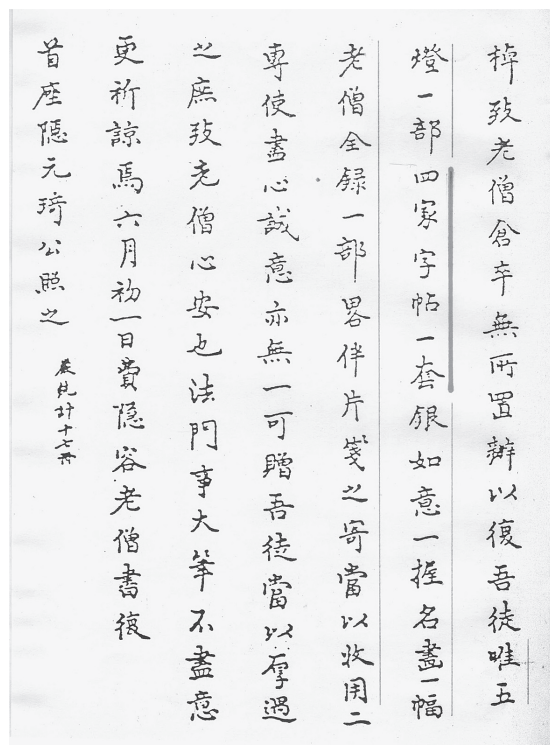 悼致老僧倉卒無所置辦以復吾徒唯五
燈一部四家字帖一套銀如意一握名畫一幅
老僧全錄一部畧伴片箋之寄當以收用二
專使盡心誠意亦無一可贈吾徒當以厚過
之庶致老僧心安也法門事大筆不盡意
更祈諒焉六月初一日費隱容老僧書復
首座隱元琦公照之
嚴統計十七冊